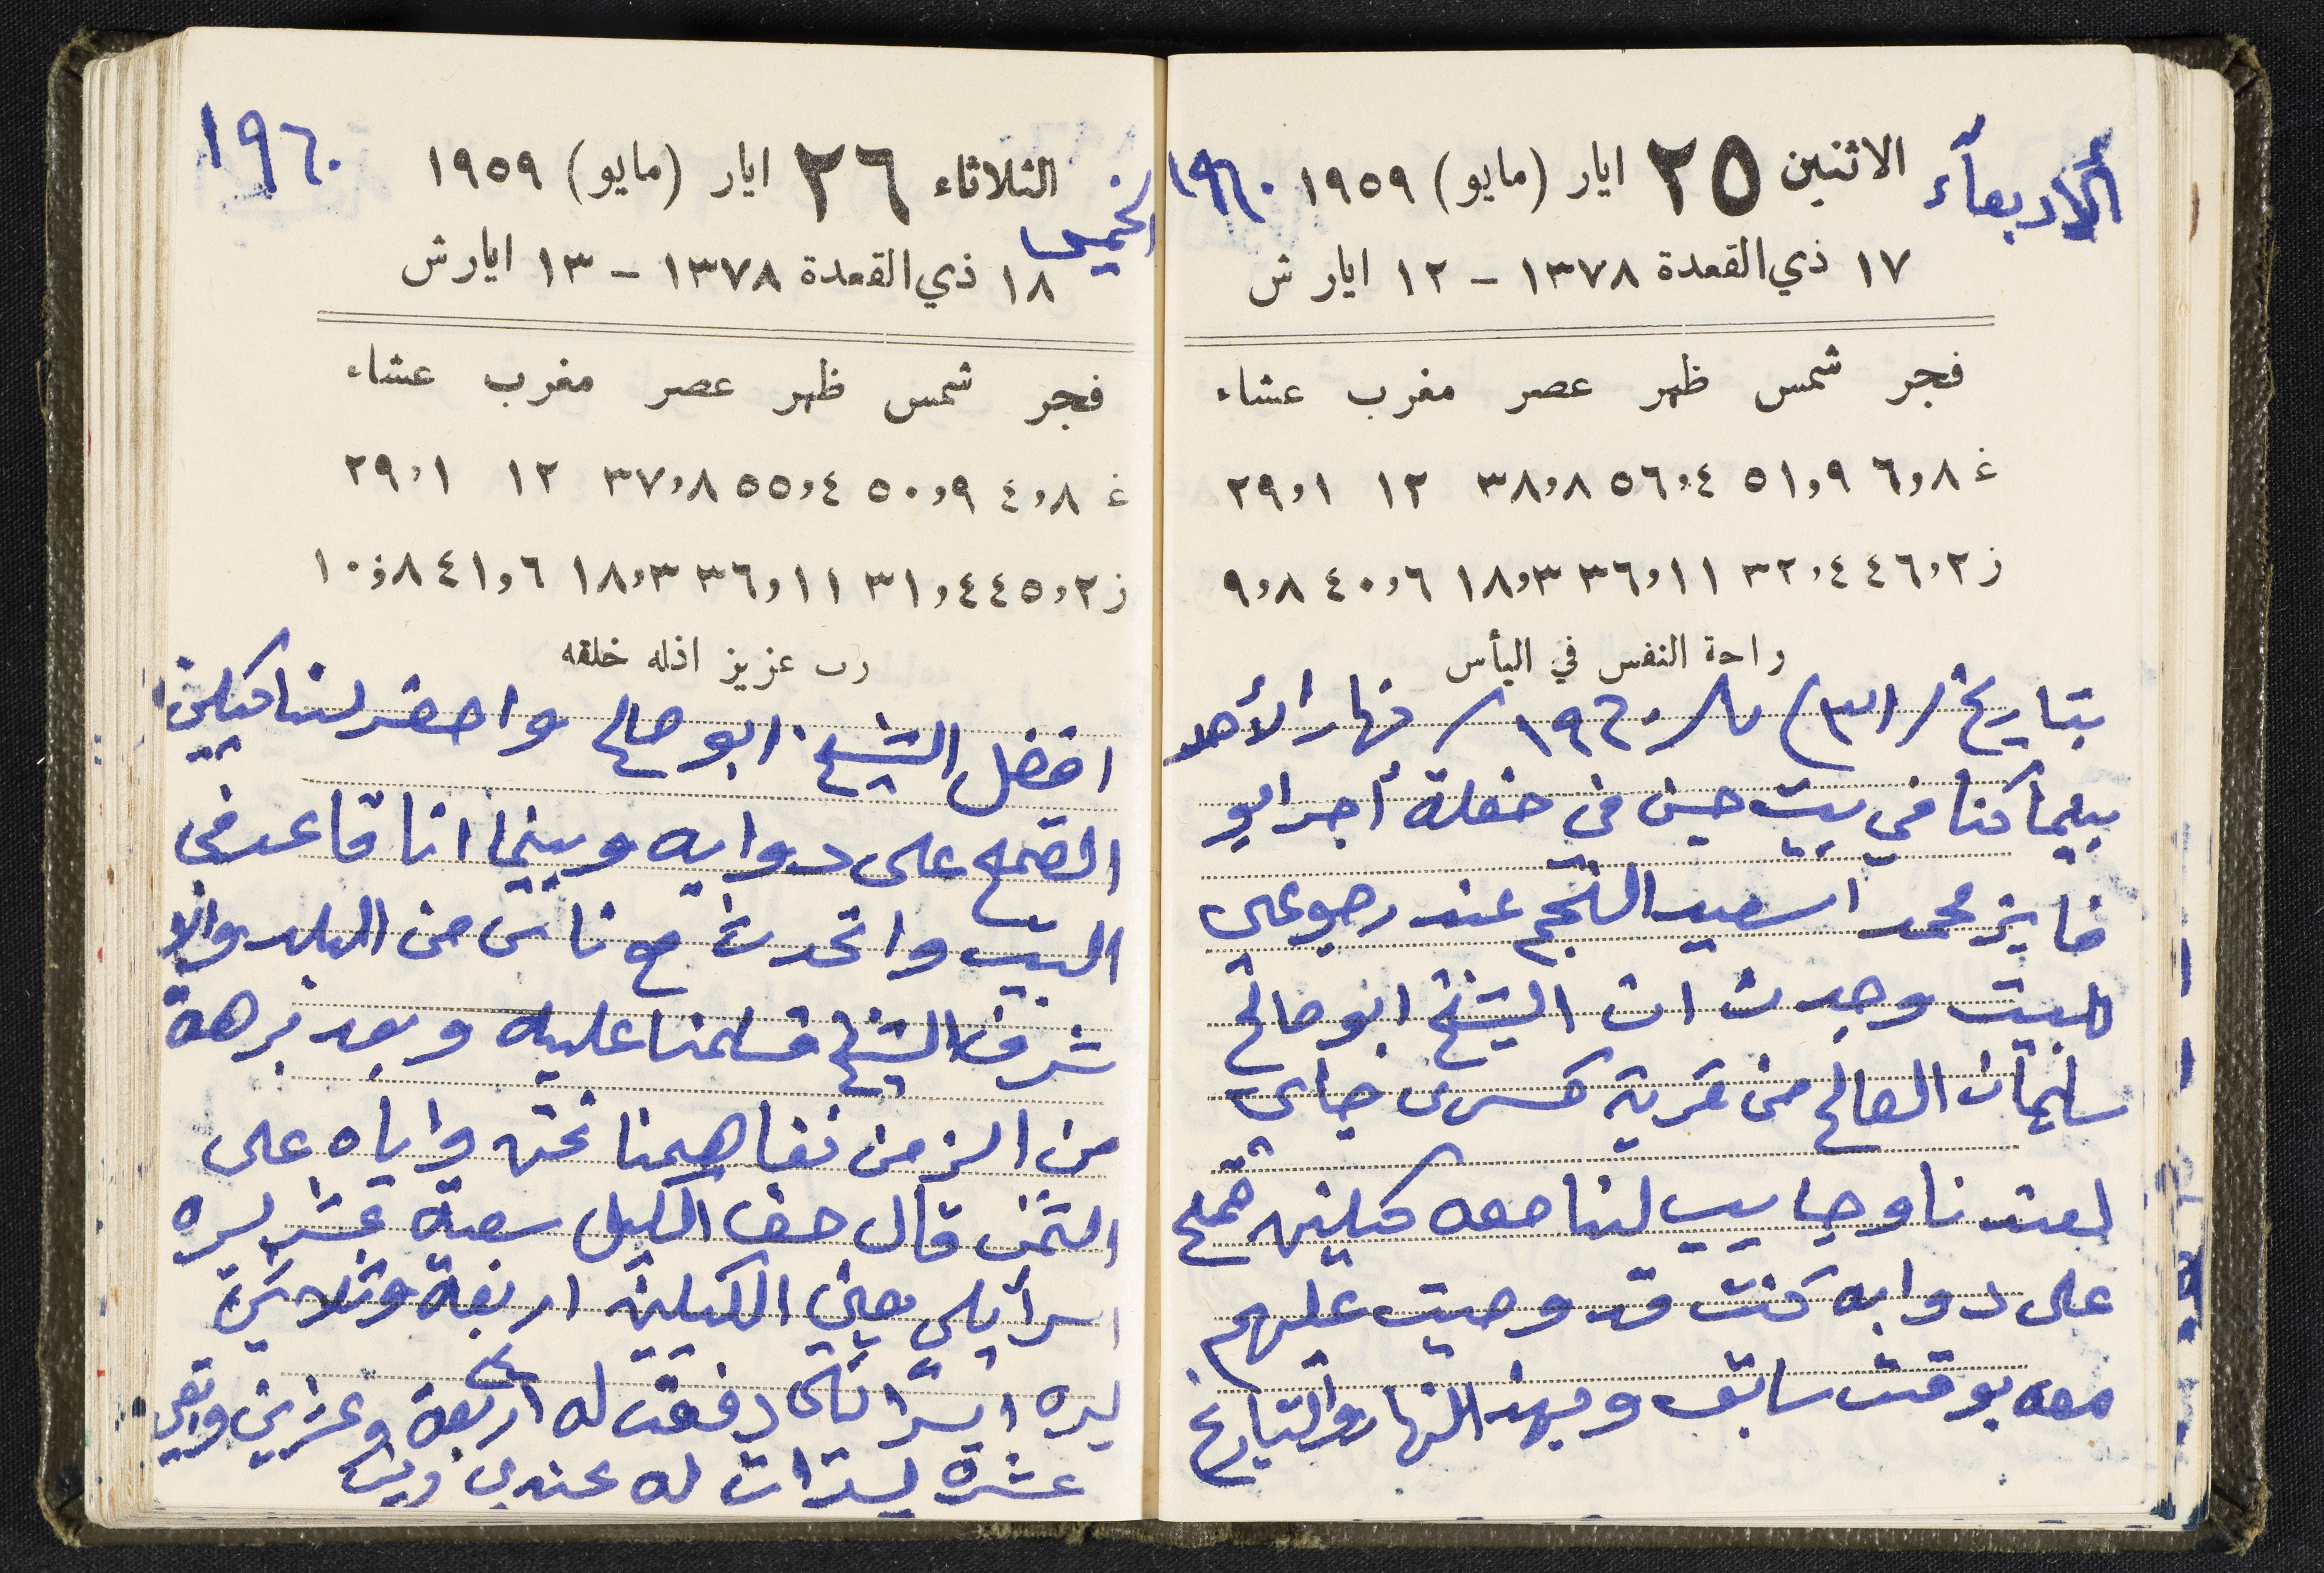 الأربعاء الاثنين ٢٥ ايار (مايو) ١٩٥٩ ١٩٦٠
١٧ ذي القعدة ١٣٧٨ - ١٢ ايار ش
فجر شمس ظهر عصر مغرب عشاء
غ ٦,٨ ٥١,٩ ٥٦,٤ ٣٨,٨ ١٢ ٢٩,١
ز ٤٦,٢ ٣٢,٤ ٣٦,١١ ١٨,٣ ٤٠,٦ ٩,٨
راحة النفس في اليأس
بتاريخ / (٣١) / ١٩٦٠ / نهار الأحد
بينما كنا في بيت حسن في حفلة أجر ابو
فايز محمد اسعيد النجم عند رجوعي
للبيت وجدت ان الشيخ ابو صالح
سليمان الصالح من قرية كسرى جاي
لعندنا وجايب لنا معه كيلين قمح
على دوابه كنت قد وصيت عليهم
معه بوقت سابق وبهذ النهار والتاريخ
الخميس الثلاثاء ٢٦ ايار (مايو) ١٩٥٩ ١٩٦٠
١٨ ذي القعدة ١٣٧٨ - ١٣ ايار ش
فجر شمس ظهر عصر مغرب عشاء
غ ٤,٨ ٥٠,٩ ٥٥,٤ ٣٧,٨ ١٢ ٢٩,١
ز ٤٥,٢ ٣١,٤ ٣٦,١١ ١٨,٣ ٤١,٦ ١٠,٨
رب عزيز اذله خلقه
افضل الشيخ ابو صالح واحضر لنا كيلين
القمح على دوابه وبينما انا قاعد في
البيت واتحدث مع ناس من البلد وانو
شرف الشيخ فسلمنا عليه وبعد برهة
من الزمن تفاهمنا نحن واياه على
الثمن قال حق الكيل سبعة عشر ليره
اسرايلي يعني الكيلين اربعة وثلاثين
ليره دفعت له اربعة وعشرين وبقي
عشرة ليرات له عندي